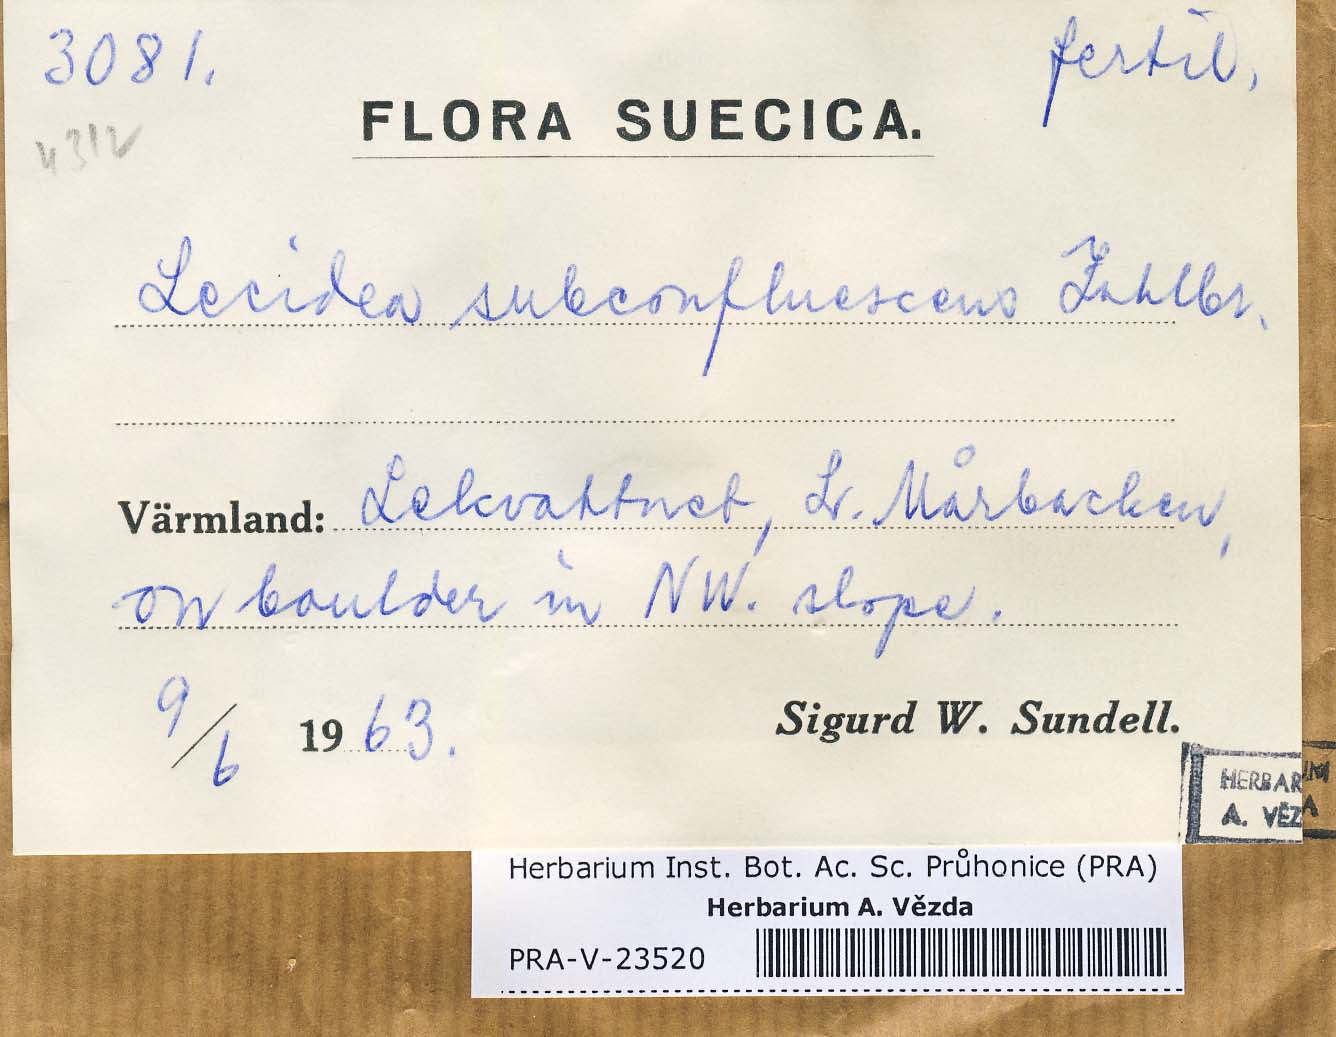 3081.
fertil.
4312
FLORA SUECICA.
Lecidea subconfluescens Zahlbr.
Värmland: Lekvattnet, Lr. Mårbacken,
on boulder in NW. slope.
9/6 1963.
Sigurd W. Sundell.
HERBARIUM
A. VĚZDA
Herbarium Inst. Bot. Ac. Sc. Průhonice (PRA)
Herbarium A. Vězda
PRA-V-23520